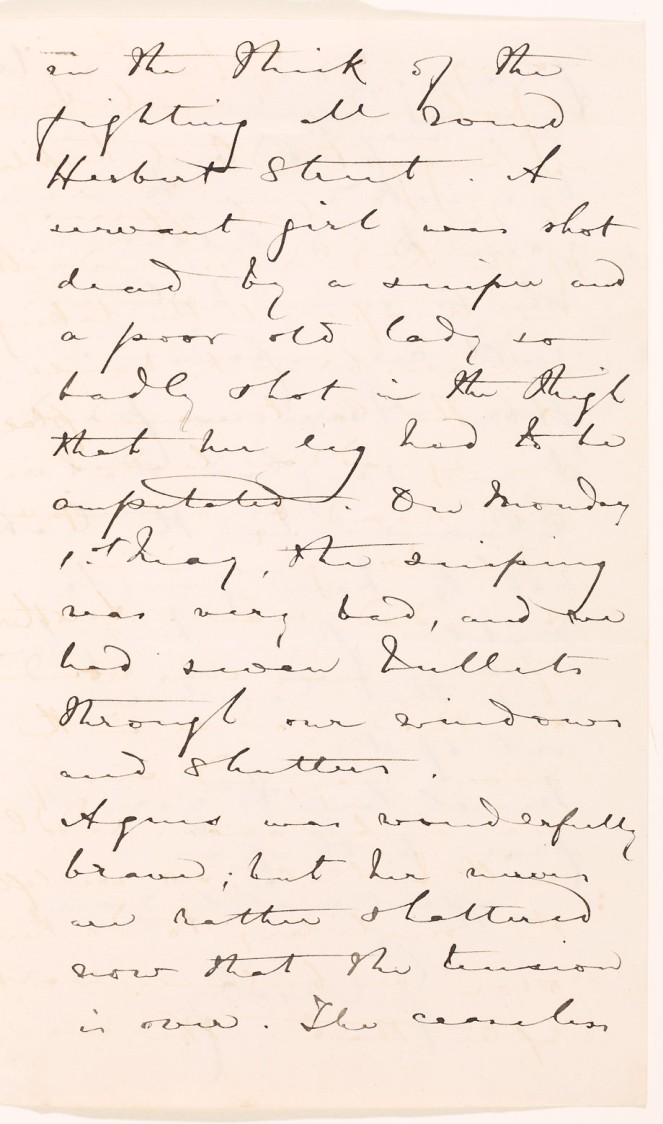 in the thick of the
fighting all round
Herbert Street. A
servant girl was shot
dead by a sniper and
a poor old lady so
badly shot in the thigh
that her leg had to be
amputated. On Monday
1st May, the sniping
was very bad, and we
had seven bullets
through our windows
and shutters.
Agnes was wonderfully
brave; but her nerves
are rather shattered
now that the tension
is over. The ceaseless